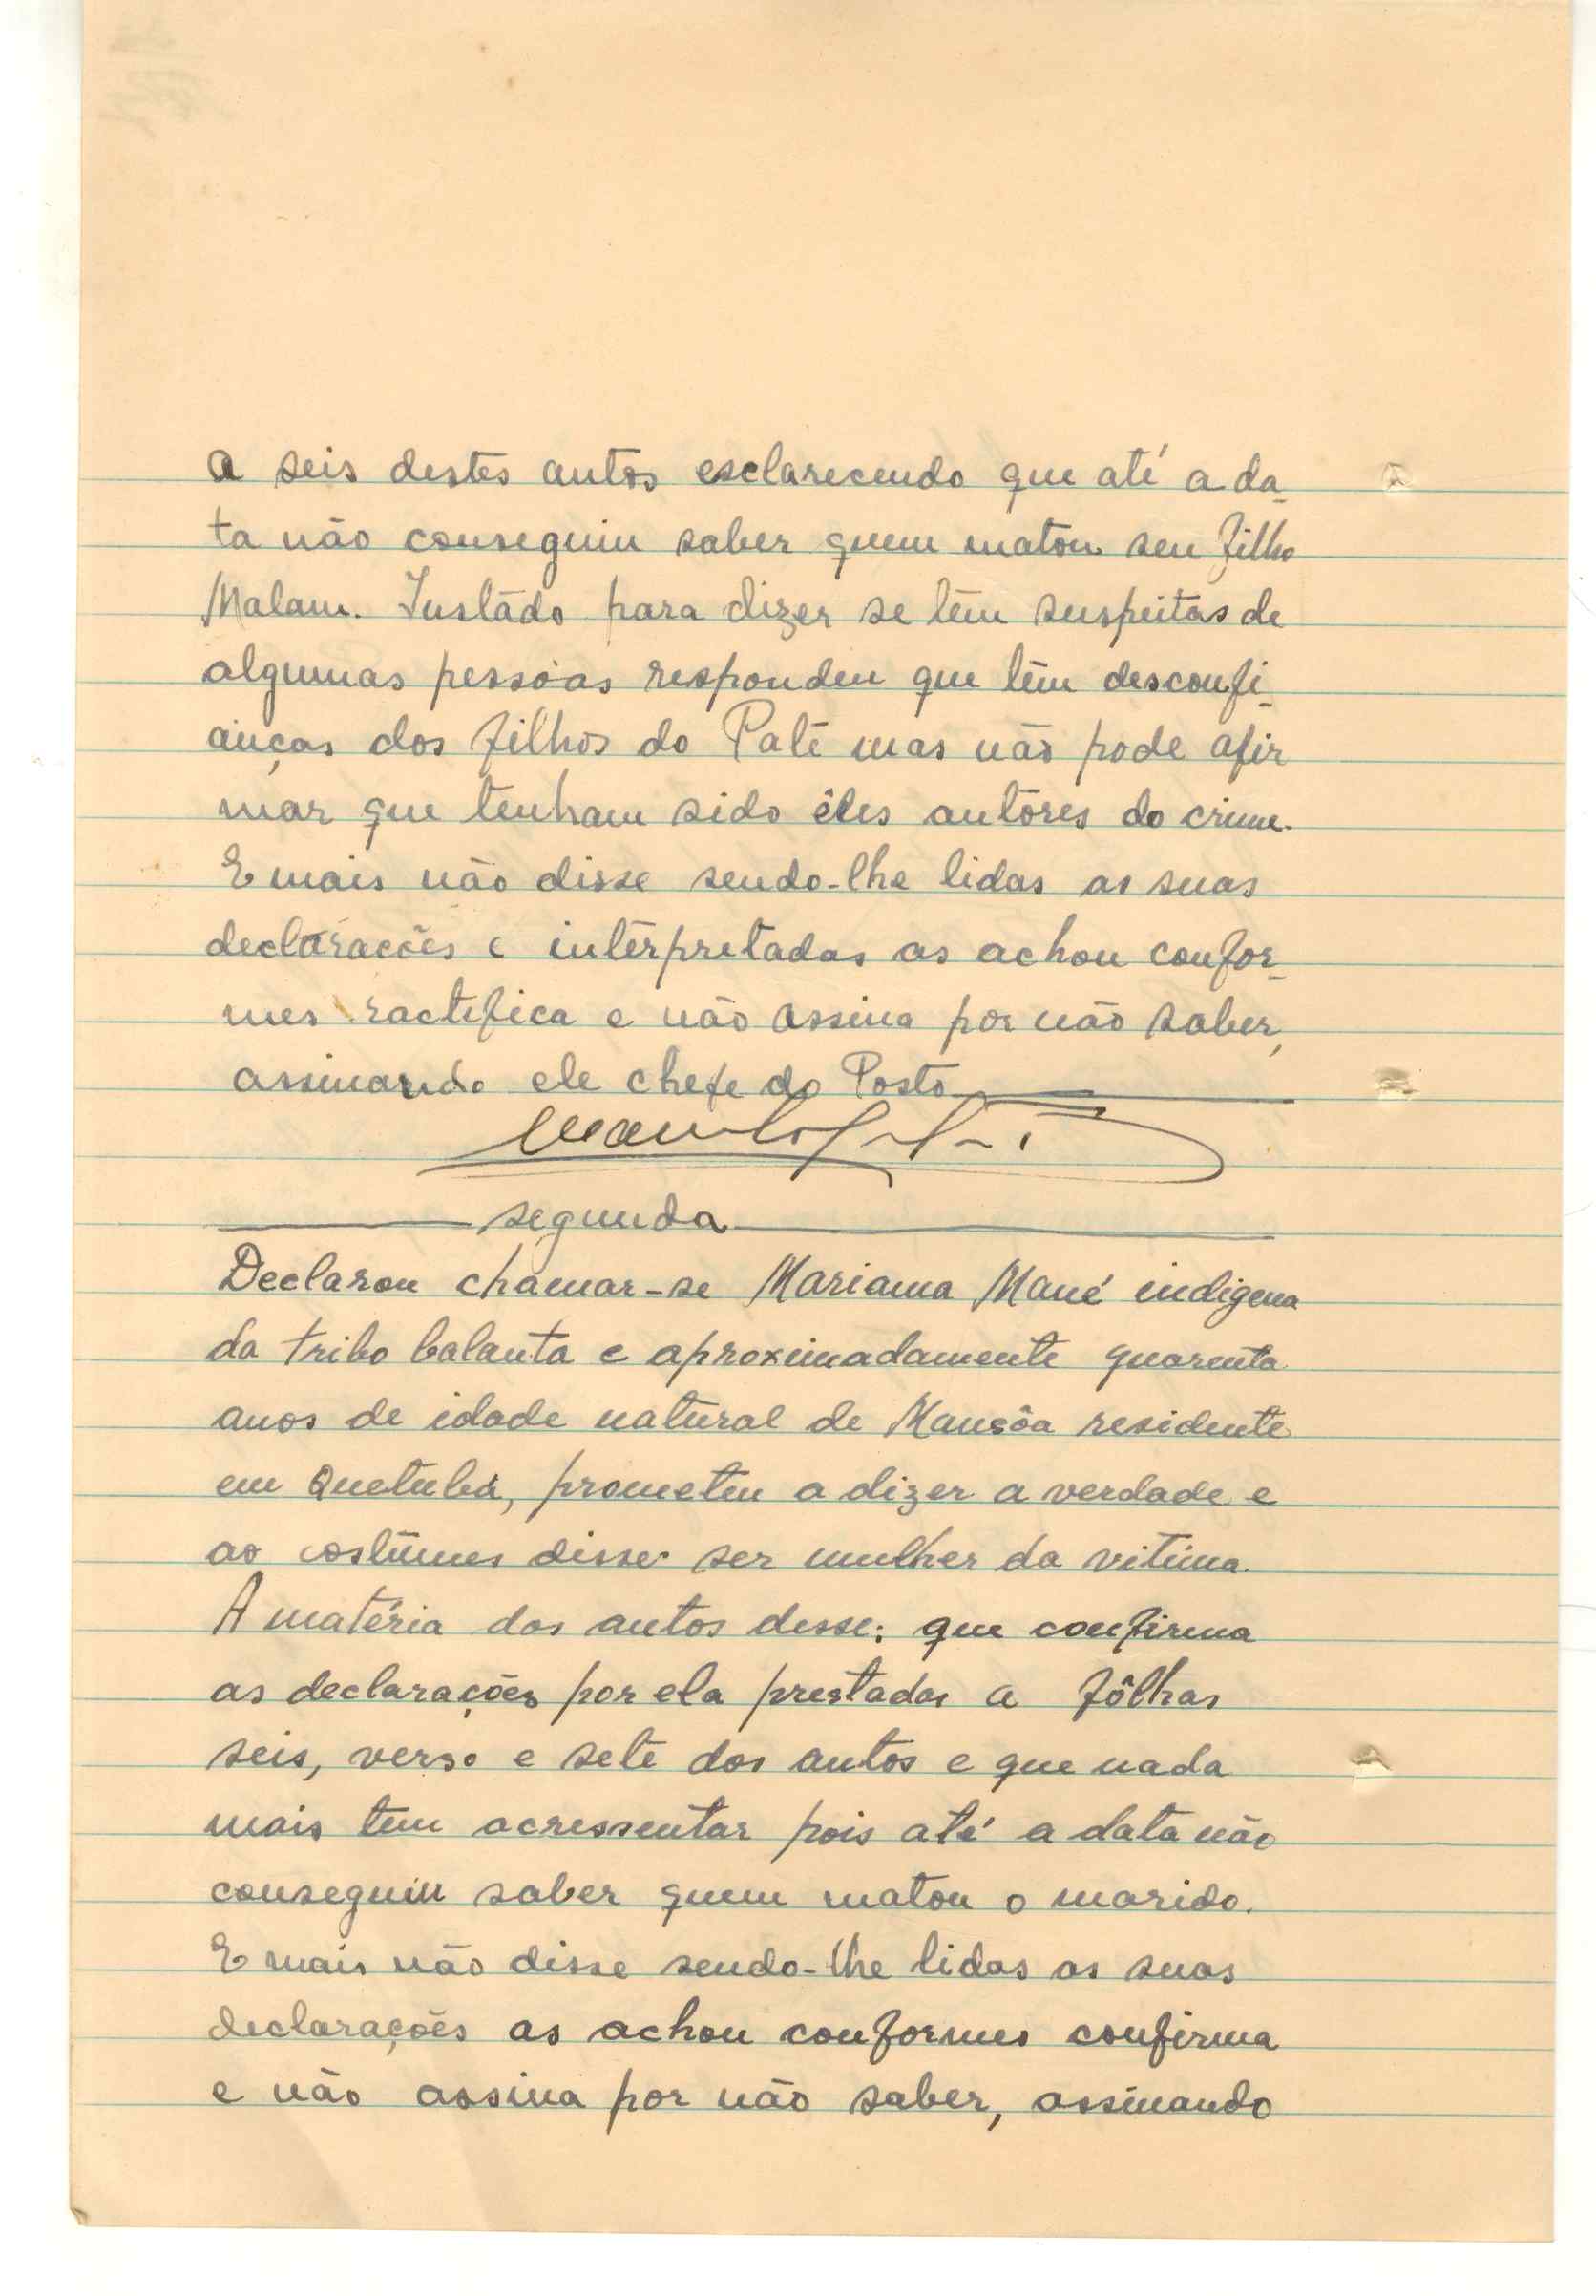 a seis destes autos esclarecendo que até a da-
ta não conseguiu saber quem matou seu filho
Malam. Instádo para dizer se têm suspeitas de
algumas pessôas respondeu que têm desconfi-
anças dos filhos do Paté mas não pode afir
mar que tenham sido êles autôres do crime.
E mais não disse sendo-lhe lidas as suas
declarações e intérpretadas as achou confor-
mes ractifica e não assina por não saber,
assinando ele chefe do Posto
segunda
Declarou chamar-se Mariama Mané indigena
da tribo balanta e aproximadamente quarenta
anos de idade natural de Mansôa residente
em Quetubá, prometeu a dizer a verdade e
ao costúmes disse ser mulher da vitima.
A matéria dos autos desse: que confirma
as declarações por ela prestadas a fôlhas
seis, verso e sete dos autos e que nada
mais tem acressentar pois até a data não
conseguiu saber quem matou o marido.
E mais não disse sendo-lhe lidas as suas
declarações as achou conformes confirma
e não assina por não saber, assinando